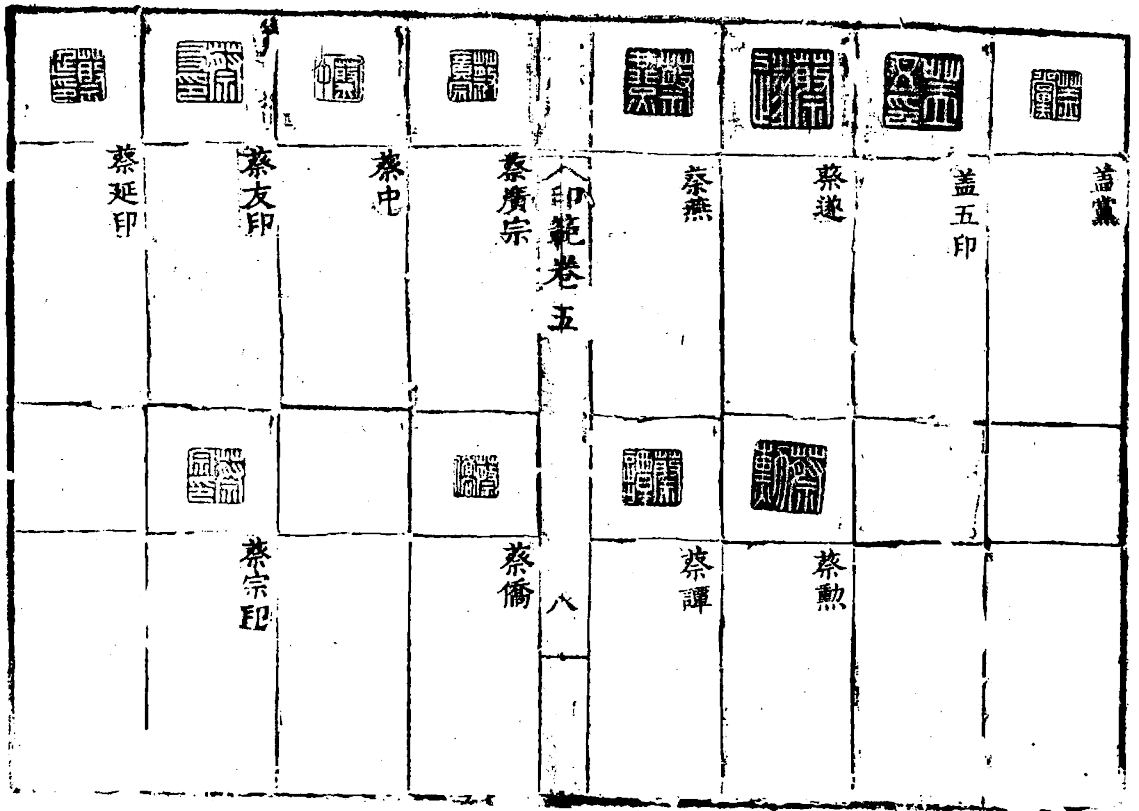 盖黨
盖五印
蔡遂
蔡勲
蔡燕
蔡譚
印範卷五
八
蔡廣宗
蔡僑
蔡中
蔡友印
蔡宗印
蔡延印